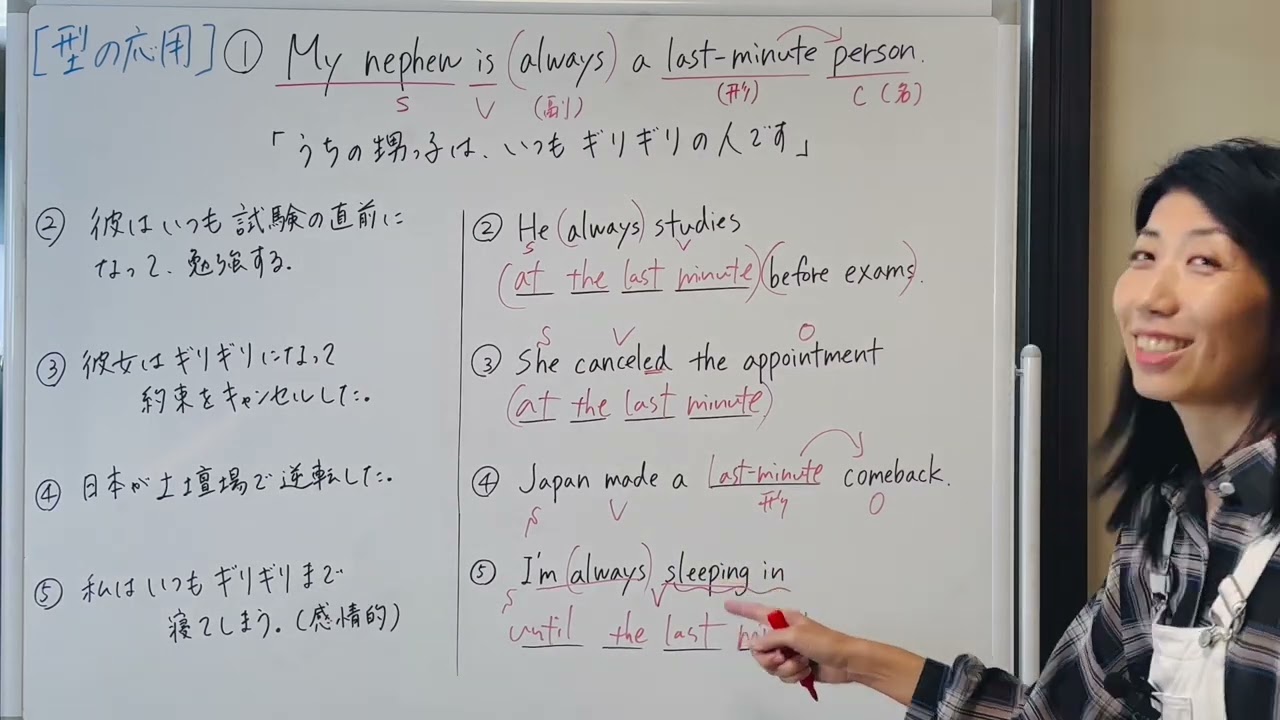 [型の応用] ① My nephew is (always) a last-minute person.
S V (副) (形) C (名)
「うちの甥っ子は、いつもギリギリの人です」
② 彼はいつも試験の直前に
なって、勉強する。
③ 彼女はギリギリになって
約束をキャンセルした。
④ 日本が土壇場で逆転した。
⑤ 私はいつもギリギリまで
寝てしまう。(感情的)
② He (always) studies
S V
(at the last minute)(before exams).
S V O
③ She canceled the appointment
(at the last minute)
④ Japan made a last-minute comeback.
S V 形 O
⑤ I'm (always) sleeping in
S V
until the last